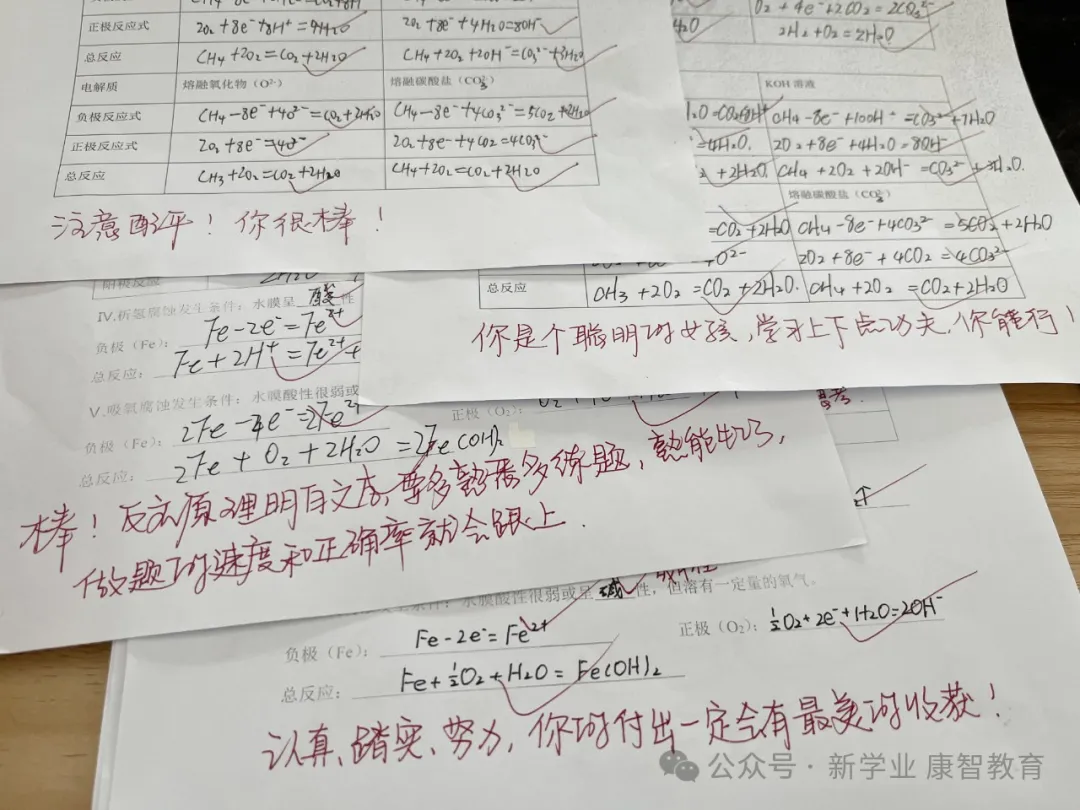 正极反应式 2O₂+8e⁻+8H⁺=4H₂O 2O₂+8e⁻+4H₂O=8OH⁻
总反应 CH₄+2O₂=CO₂+2H₂O CH₄+2O₂+2OH⁻=CO₃²⁻+3H₂O
电解质 熔融氧化物（O²⁻） 熔融碳酸盐（CO₃²⁻）
负极反应式 CH₄-8e⁻+4O²⁻=CO₂+2H₂O CH₄-8e⁻+4CO₃²⁻=5CO₂+2H₂O
正极反应式 2O₂+8e⁻=4O²⁻ 2O₂+8e⁻+4CO₂=4CO₃²⁻
总反应 CH₃+2O₂=CO₂+2H₂O CH₄+2O₂=CO₂+2H₂O
注意配平！你很棒！
O₂+4e⁻+2CO₂=2CO₃²⁻
2H₂+O₂=2H₂O
KOH 溶液
CH₄-8e⁻+10OH⁻=CO₃²⁻+7H₂O
=4H₂O. 2O₂+8e⁻+4H₂O=8OH⁻
+2H₂O. CH₄+2O₂+2OH⁻=CO₃²⁻+3H₂O.
熔融碳酸盐（CO₃²⁻）
=CO₂+2H₂O CH₄-8e⁻+4CO₃²⁻=5CO₂+2H₂O
2O₂+8e⁻+4CO₂=4CO₃²⁻
总反应 CH₃+2O₂=CO₂+2H₂O. CH₄+2O₂=CO₂+2H₂O
你是个聪明的女孩,学习上下点功夫,你能行!
阳极反应
IV.析氢腐蚀发生条件：水膜呈 酸 性
负极（Fe）： Fe-2e⁻=Fe²⁺
总反应： Fe+2H⁺=Fe²⁺+
V.吸氧腐蚀发生条件：水膜酸性很弱或
负极（Fe）： 2Fe-4e⁻=2Fe²⁺ 正极（O₂）：
总反应： 2Fe+O₂+2H₂O=2Fe(OH)₂
棒！反应原理明白之后,要多熟悉多练题,熟能生巧,
做题的速度和正确率就会跟上.
水膜酸性很弱或呈 碱 性，但溶有一定量的氧气。
负极（Fe）： Fe-2e⁻=Fe²⁺ 正极（O₂）： ½O₂+2e⁻+H₂O=2OH⁻
总反应： Fe+½O₂+H₂O=Fe(OH)₂
认真、踏实、努力,你的付出一定会有最美的收获!
公众号·新学业 康智教育